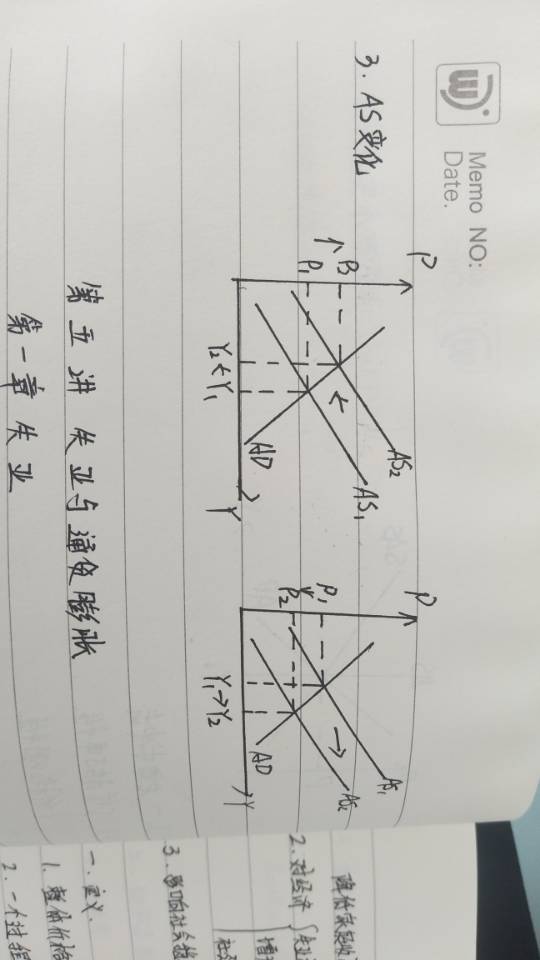 Memo NO:
Date.
3. AS变化
P
P2
↑
P1
AS2
AS1
AD
Y2←Y1
Y
P
P1
↓
P2
AS1
AS2
AD
Y1→Y2
Y
第五讲 失业与通货膨胀
第一章 失业
2. 对经济
3. 影响社会
一. 定义.
1. 整体价格
2. 一个过程